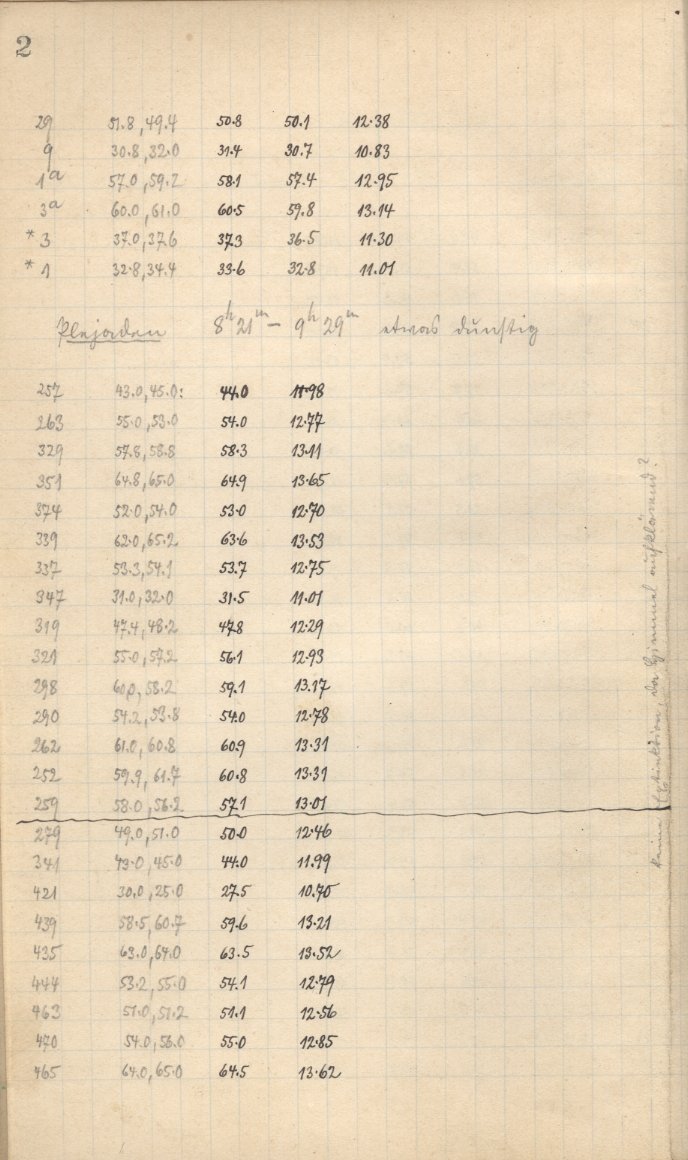 2
29 51.8, 49.4 50.8 50.1 12.38
9 30.8, 32.0 31.4 30.7 10.83
1a 57.0, 59.2 58.1 57.4 12.95
3a 60.0, 61.0 60.5 59.8 13.14
* 3 37.0, 37.6 37.3 36.5 11.30
* 1 32.8, 34.4 33.6 32.8 11.01
Plejaden 8h 21m – 9h 29m etwas dunstig
257 43.0, 45.0: 44.0 11.98
263 55.0, 53.0 54.0 12.77
329 57.8, 58.8 58.3 13.11
351 64.8, 65.0 64.9 13.65
374 52.0, 54.0 53.0 12.70
339 62.0, 65.2 63.6 13.53
337 53.3, 54.1 53.7 12.75
347 31.0, 32.0 31.5 11.01
319 47.4, 48.2 47.8 12.29
321 55.0, 57.2 56.1 12.93
298 60.0, 58.2 59.1 13.17
290 54.2, 53.8 54.0 12.78
262 61.0, 60.8 60.9 13.31
252 59.9, 61.7 60.8 13.31
259 58.0, 56.2 57.1 13.01
279 49.0, 51.0 50.0 12.46
341 43.0, 45.0 44.0 11.99
421 30.0, 25.0 27.5 10.70
439 58.5, 60.7 59.6 13.21
435 63.0, 64.0 63.5 13.52
444 53.2, 55.0 54.1 12.79
463 51.0, 51.2 51.1 12.56
470 54.0, 56.0 55.0 12.85
465 64.0, 65.0 64.5 13.62
keine Extinktion, da Himmel aufklärend?